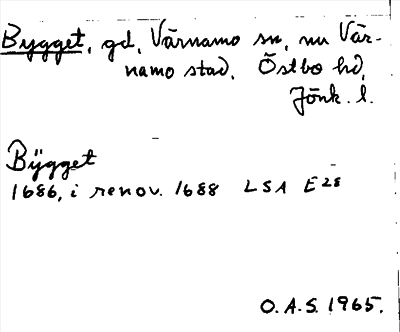 Bygget, gd, Värnamo sn, nu Vär-
namo stad, Östbo hd,
Jönk. l.
Bÿgget
1686, i renov. 1688 LSA E28
O.A.S. 1965.